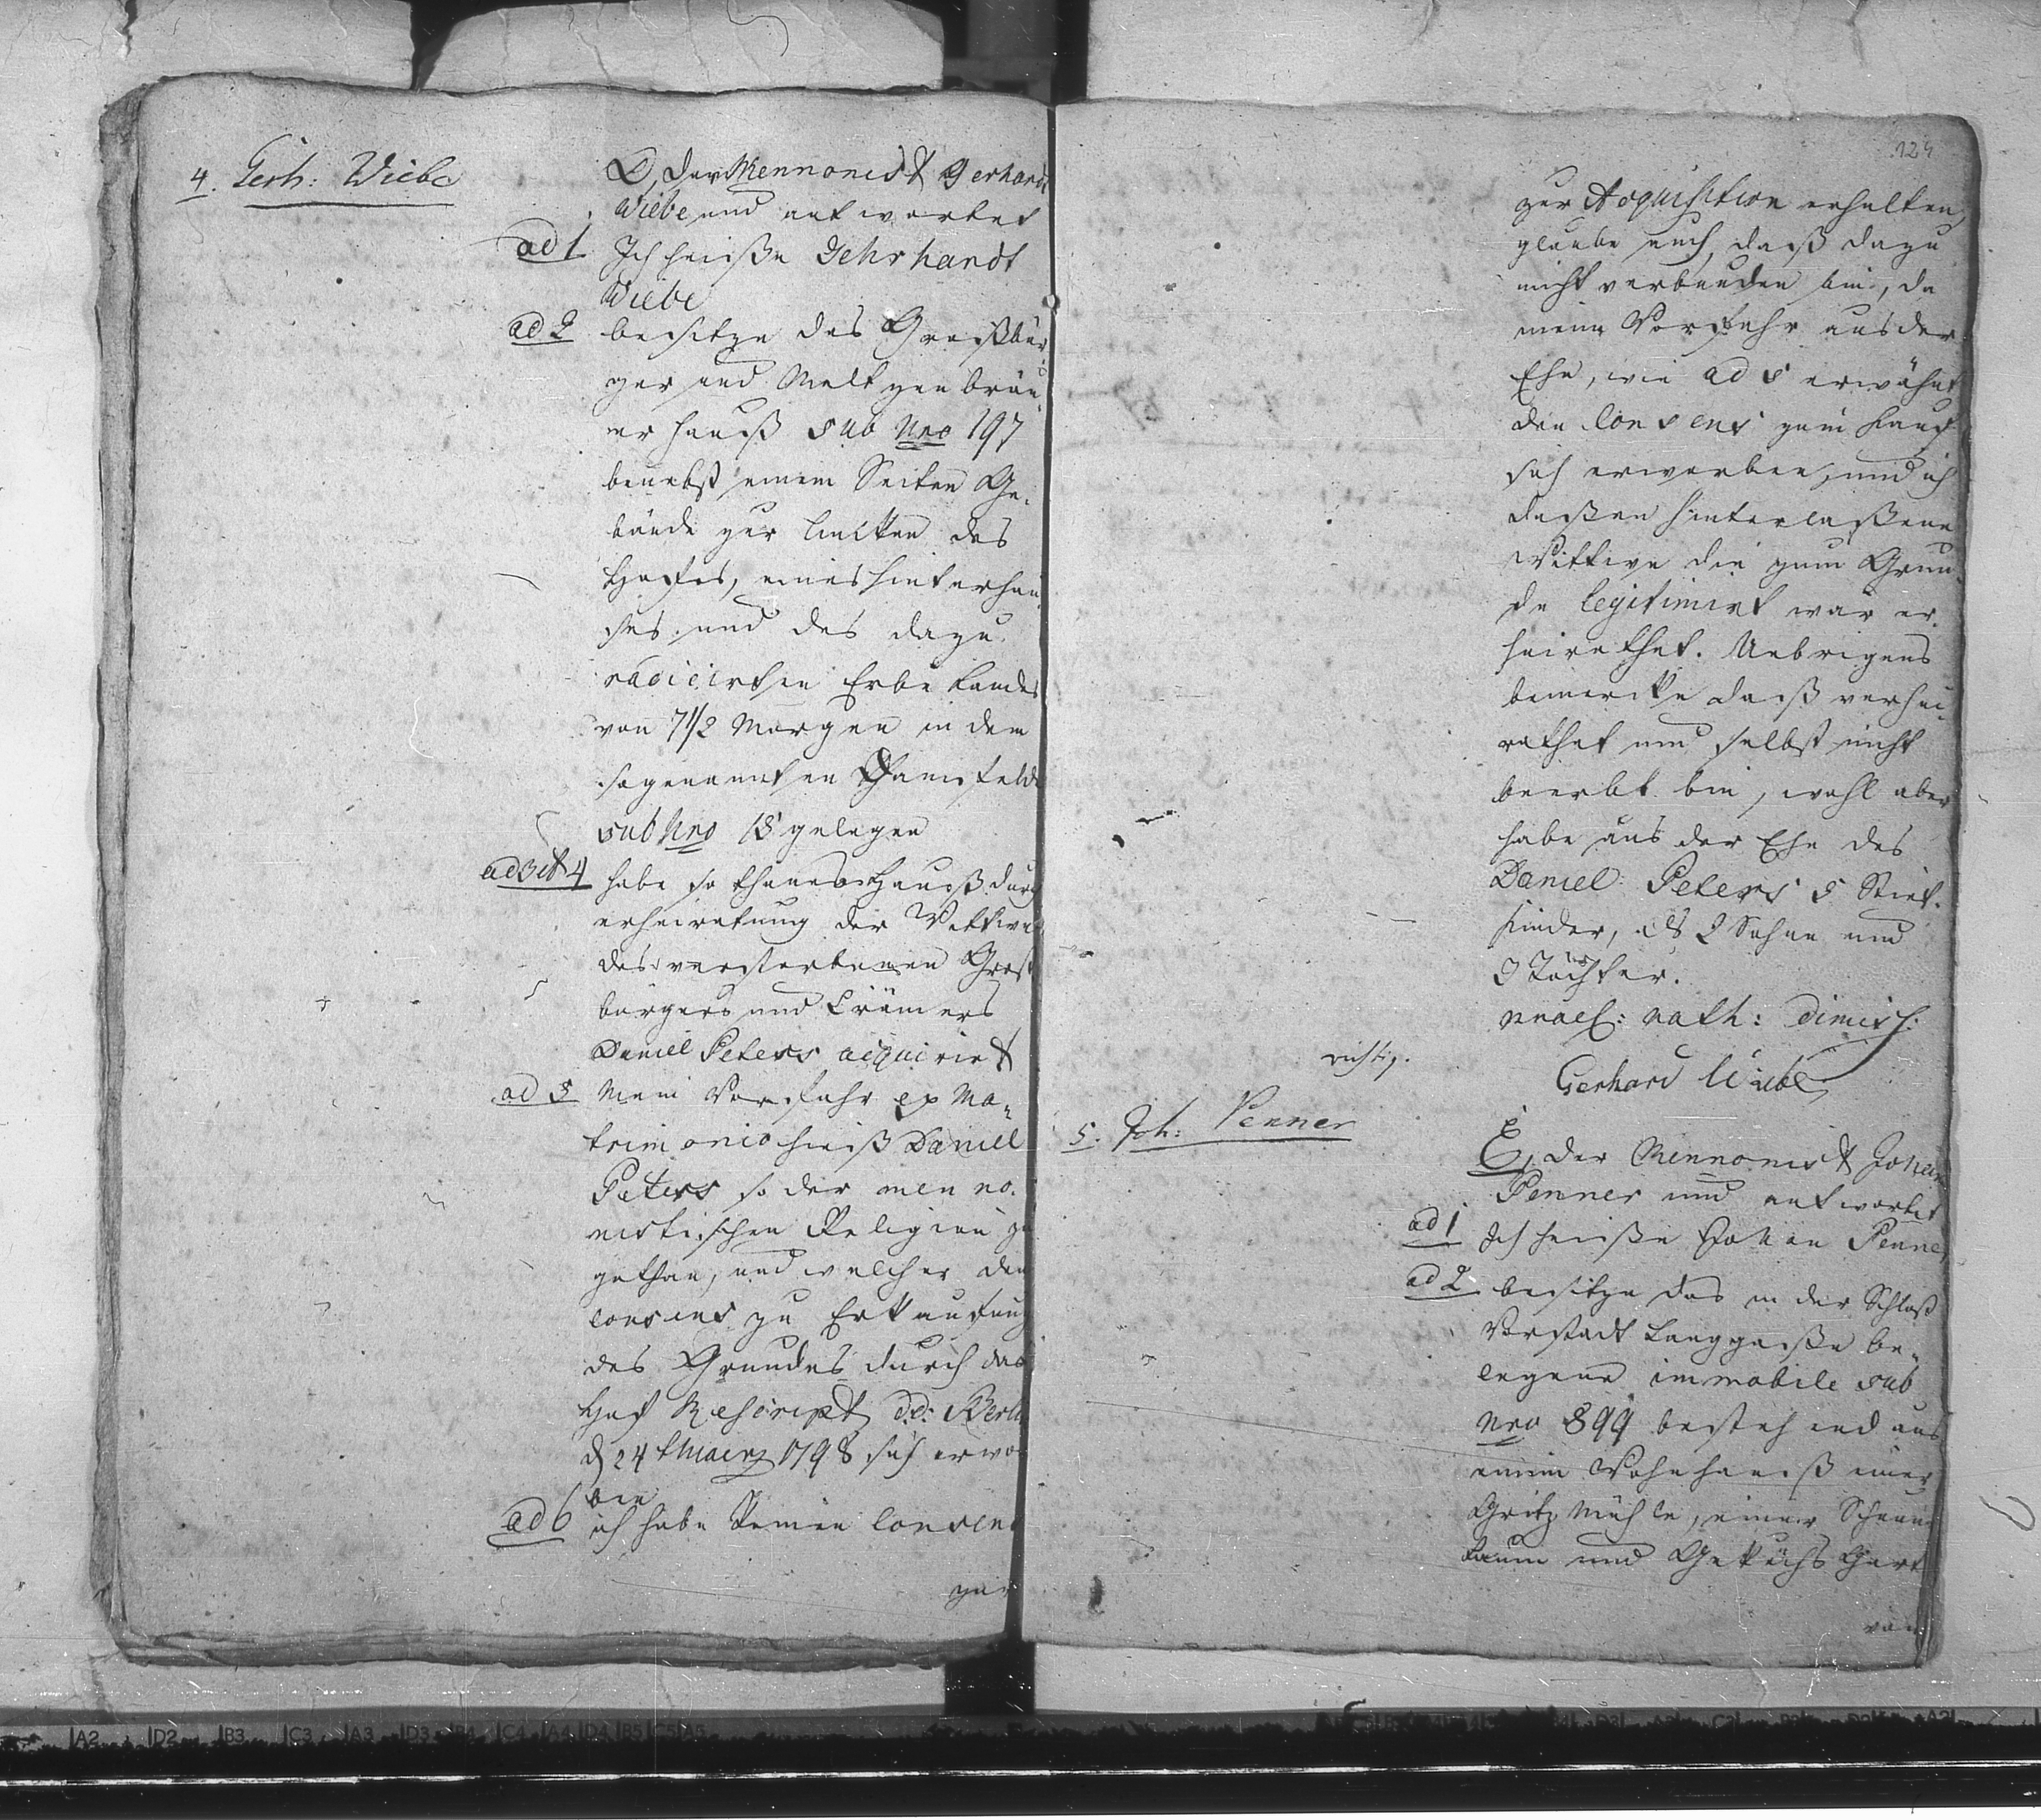 4. Gerh: Wiebe
D, der Mennonist Gerhardt
Wiebe und antwortet
ad 1 Ich heiße Gehrhandt
Wiebe
ad 2 besitze das Großbür-
ger und Meltzenbräu-
er Hauß sub Nro 197
benebst einem Seiten Ge-
bäude zur lincken des
Hofes, eines Hinterhau-
ses und des dazu
radicirten Erbe Landes
von 7 1/2 Morgen in dem
sogenannten felde
sub Nro 18 gelegen
ad 3 et 4 habe so thanes Hauß durch
erheiratung der Wittwe
des verstorbenen Gros
bürgers und Krämers
Daniel Peters acquirirt
ad 5 Mein Vorfahr ex Ma-
trimonio hieß Daniel
Peters so der menno-
nistischen Religion zu
gethan, und welcher den
Consens zu Erkaufung
des Grundes durch das
Hof Rescript d.d. Berlin
d 24 t Maerz 1798 sich erwor
ben
ad 6 ich habe keinen Consens
zur
124
zur Acquisition erhalten,
glaube auch, daß dazu
nicht verbunden bin, da
mein Vorfahr aus der
Ehe, wie ad 5 erwähnt
den Consens zum Kauf
sich erworben, und ich
deßen hinterlaßene
Wittwe die zum Grun-
de legitimirt war er-
heirathet. Uebrigens
bemercke daß verhei-
rathet und selbst nicht
beerbt bin, wohl aber
habe aus der Ehe des
Daniel Peters 5 Stief-
kinder, als 2 Söhne und
3 Töchter.
prael: rath: dimiss:
Gerhard Wiebe
richtig.
5. Joh: Penner
E, der Mennonist Johan
Penner und antwortet
ad 1 Ich heiße Johan Penner
ad 2 besitze das in der Schloß
Vorstadt Langgaße be-
legene immobile sub
Nro 899 bestehend aus
einem Wohnhauß einer
Gritz Mühle, einer Scheun
Raum und Gekochs Gart
von